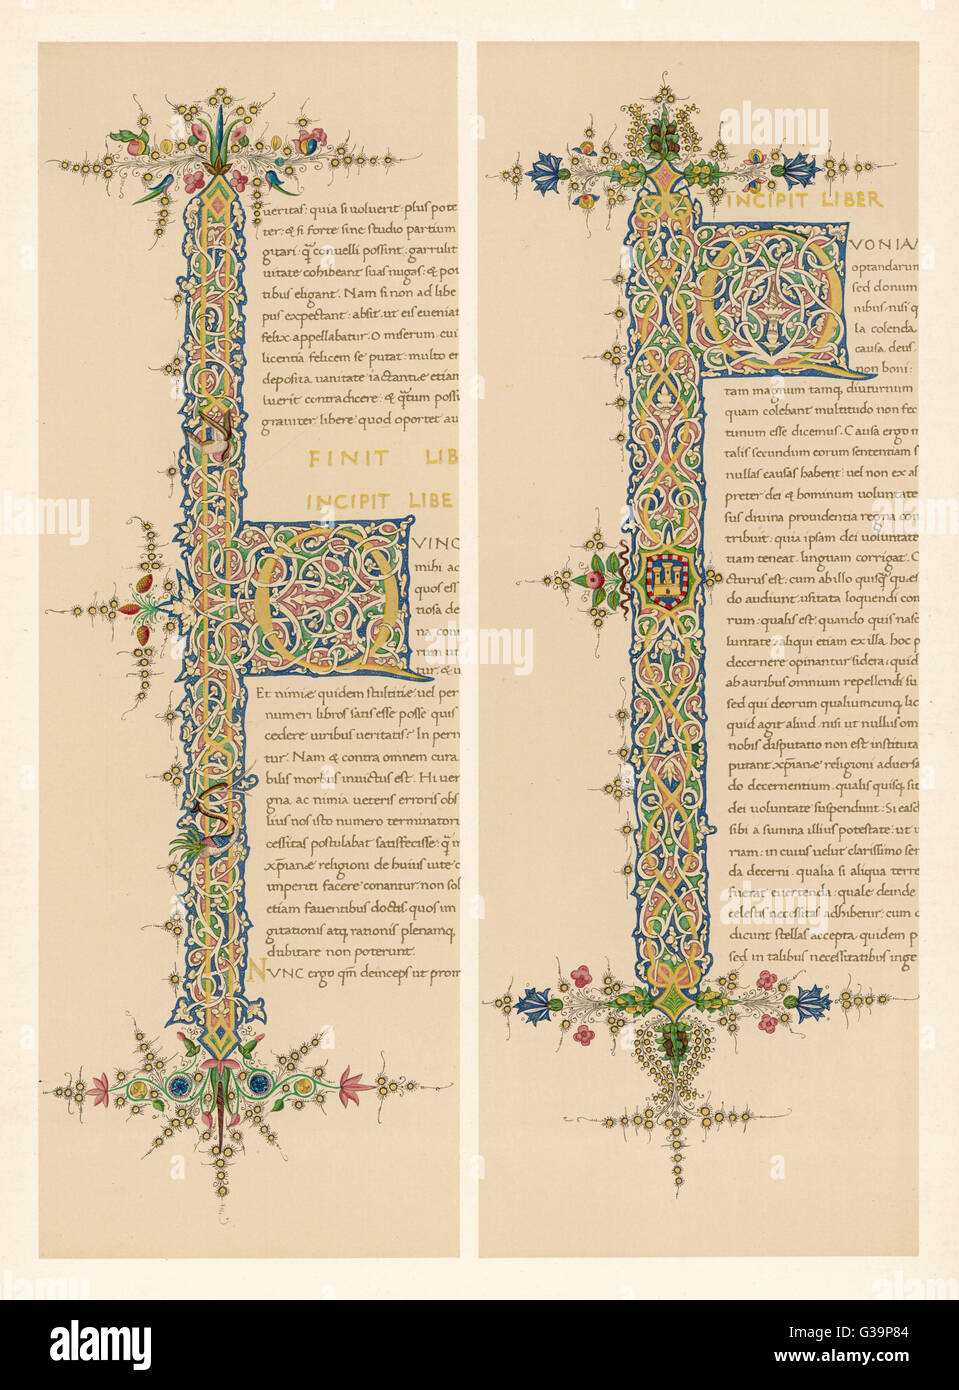 veritas: quia si voluerit: plus pote
ter: & si forte sine studio partium
gitari: q̃ convelli possint: garrulit
vitate cohibeant suas nugas: & pot
tibus eligant. Nam si non ad libe
pus expectant: absit: ut eis eveniat
felix appellabatur. O miserum cui
licentia felicem se putat: multo er
deposita vanitate iactantiæ etiam
luerit contradicere: & q̃tum possi
graviter: libere quod oportet au
FINIT LIB
INCIPIT LIBE
VINQ
mihi ac
quos ess
riosa de
na con
rum ut
tur: & u
Et nimiæ quidem stultitiæ: vel per
numeri libros satis esse posse quis
cedere viribus veritatis? In pern
tur. Nam & contra omnem cura
bilis morbus invictus est. Hi ver
gna, ac nimia veteris erroris obs
lius nos isto numero terminator
cessitas postulabat satisfecisse: q̃ in
xp̃ianæ religioni de huius vite c
imperiti facere conantur: non sol
etiam faventibus doctis quos in
gitationis atq, rationis plenamq,
dubitare non poterunt.
NVNC ergo qm̃ deinceps ut prom
INCIPIT LIBER
VONIAM
optandarum
sed donum
nibus: nisi q
la colenda,
causa. deus:
non boni:
tam magnum tamq, diuturnum
quam colebant multitudo non fec
tunum esse dicemus. Causa ergo m
talis secundum eorum sententiam s
nullas causas habent: vel non ex al
preter dei & hominum voluntate
sus divina providentia regna con
tribuit: quia ipsam dei voluntate
tiam teneat. linguam corrigat. C
cturus est: cum ab illo quisq̃ que
do audiunt: usitata loquendi con
rum: qualis est: quando quis nasc
luntate: aliqui etiam ex illa. hoc p
decernere opinantur sidera: quid
ab auribus omnium repellendi su
sed qui deorum qualiumcunq, lic
quid agit aliud. nisi ut nullus om
nobis disputatio non est instituta
putant. xp̃ianæ religioni adversa
do decernentium. qualis quisq̃ sit
dei voluntate suspendunt: Si easd
sibi a summa illius potestate: ut u
riam: in cuius velut clarissimo ser
da decerni. qualia si aliqua terre
fuerat evertenda: quale deinde
celestis necessitas adhibetur: cum d
dicunt stellas accepta quidem p
sed in talibus necessitatibus inge
alamy
alamy stock photo
G39P84
www.alamy.com